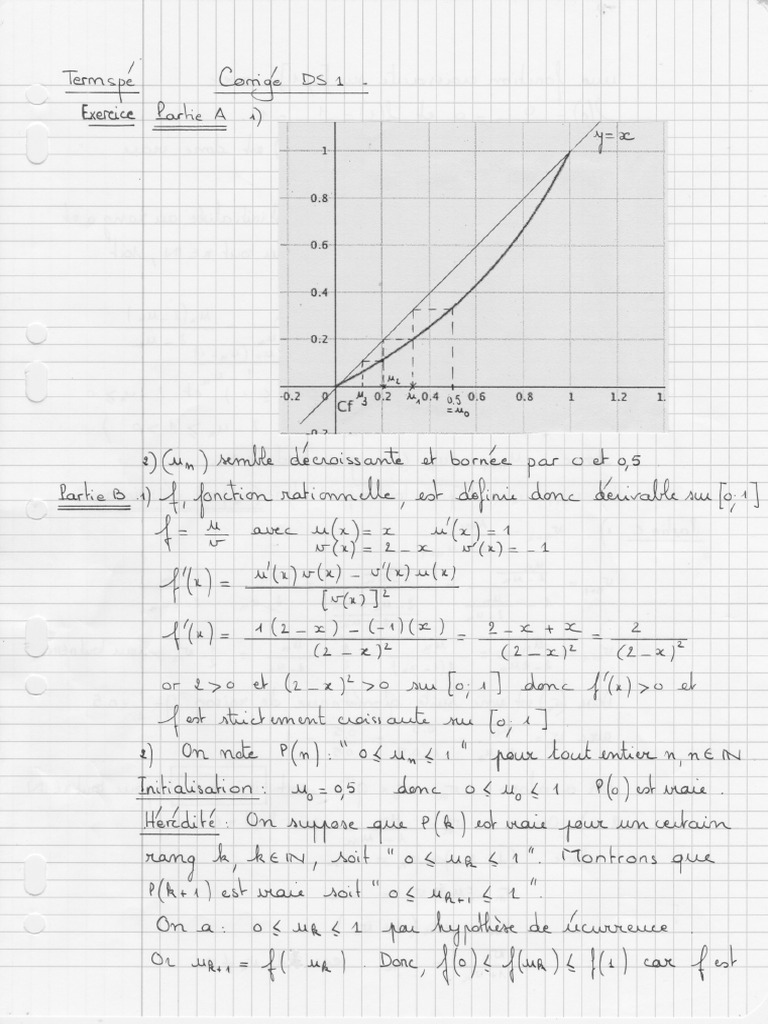 Term spé Corrigé DS 1 -
Exercice Partie A 1)
y = x
1
0.8
0.6
0.4
0.2
-0.2 0 Cf u₃ 0.2 u₂ u₁ 0.4 0,5 = u₀ 0.6 0.8 1 1.2 1.
-0.2
2) (uₙ) semble décroissante et bornée par 0 et 0,5
Partie B 1) f, fonction rationnelle, est définie donc dérivable sur [0;1]
f = u/v avec u(x) = x u'(x) = 1
v(x) = 2 - x v'(x) = -1
f'(x) = (u'(x) v(x) - v'(x) u(x)) / [v(x)]²
f'(x) = (1(2 - x) - (-1)(x)) / (2 - x)² = (2 - x + x) / (2 - x)² = 2 / (2 - x)²
or 2 > 0 et (2 - x)² > 0 sur [0;1] donc f'(x) > 0 et
f est strictement croissante sur [0;1]
2) On note P(n) : " 0 ≤ uₙ ≤ 1 " pour tout entier n, n ∈ ℕ
Initialisation : u₀ = 0,5 donc 0 ≤ u₀ ≤ 1 P(0) est vraie.
Hérédité : On suppose que P(k) est vraie pour un certain
rang k, k ∈ ℕ, soit " 0 ≤ uₖ ≤ 1 ". Montrons que
P(k+1) est vraie soit " 0 ≤ uₖ₊₁ ≤ 1 ".
On a : 0 ≤ uₖ ≤ 1 par hypothèse de récurrence.
Or uₖ₊₁ = f( uₖ ). Donc, f(0) ≤ f(uₖ) ≤ f(1) car f est